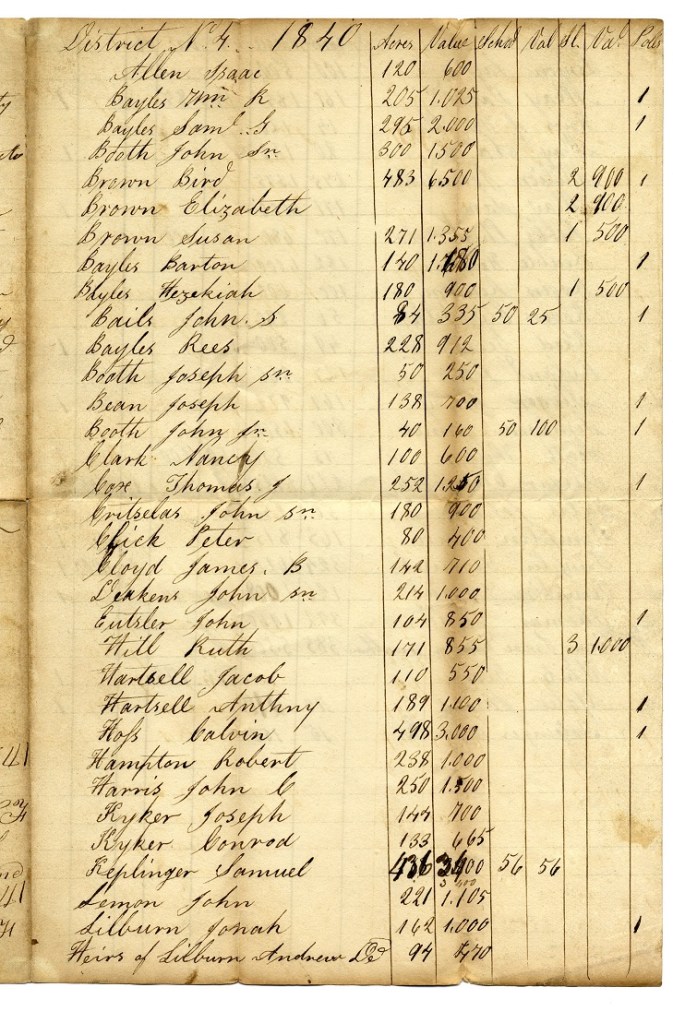 District No. 4. 1840 Acres Value Schol Val Sl. Val Poles
Allen Isaac 120 600
Bayles Wm R 205 1.025 1
Bayles Saml. G 295 2.000 1
Booth John Sn 300 1500
Brown Bird 483 6.500 2 900 1
Brown Elizabeth 2 900
Brown Susan 271 1.355 1 500
Bayles Barton 140 1
Blyles Hezekiah 180 900 1 500
Bails John. S 84 335 50 25 1
Bayles Rees 228 912
Booth Joseph Sn 50 250
Bean Joseph 138 700 1
Booth John Jn 40 160 50 100 1
Clark Nancy 100 600
Cox Thomas J 252 1.250 1
Critselas John Sn 180 900
Click Peter 80 400
Cloyd James. B 142 710
Deakens John Sn 214 1.000
Eutsler John 104 850 1
Hill Ruth 171 855 3 1.000
Hartsell Jacob 110 550
Hartsell Anthny 189 1.100 1
Hoss Calvin 498 3.000 1
Hampton Robert 238 1.000
Harris John C 250 1.500
Kyker Joseph 144 700
Kyker Conrod 133 665
Keplinger Samuel 436 56 56
Lemon John 221 1.105
Lilburn Jonah 162 1.000 1
Heirs of Lilburn Andrew Dd 94 470